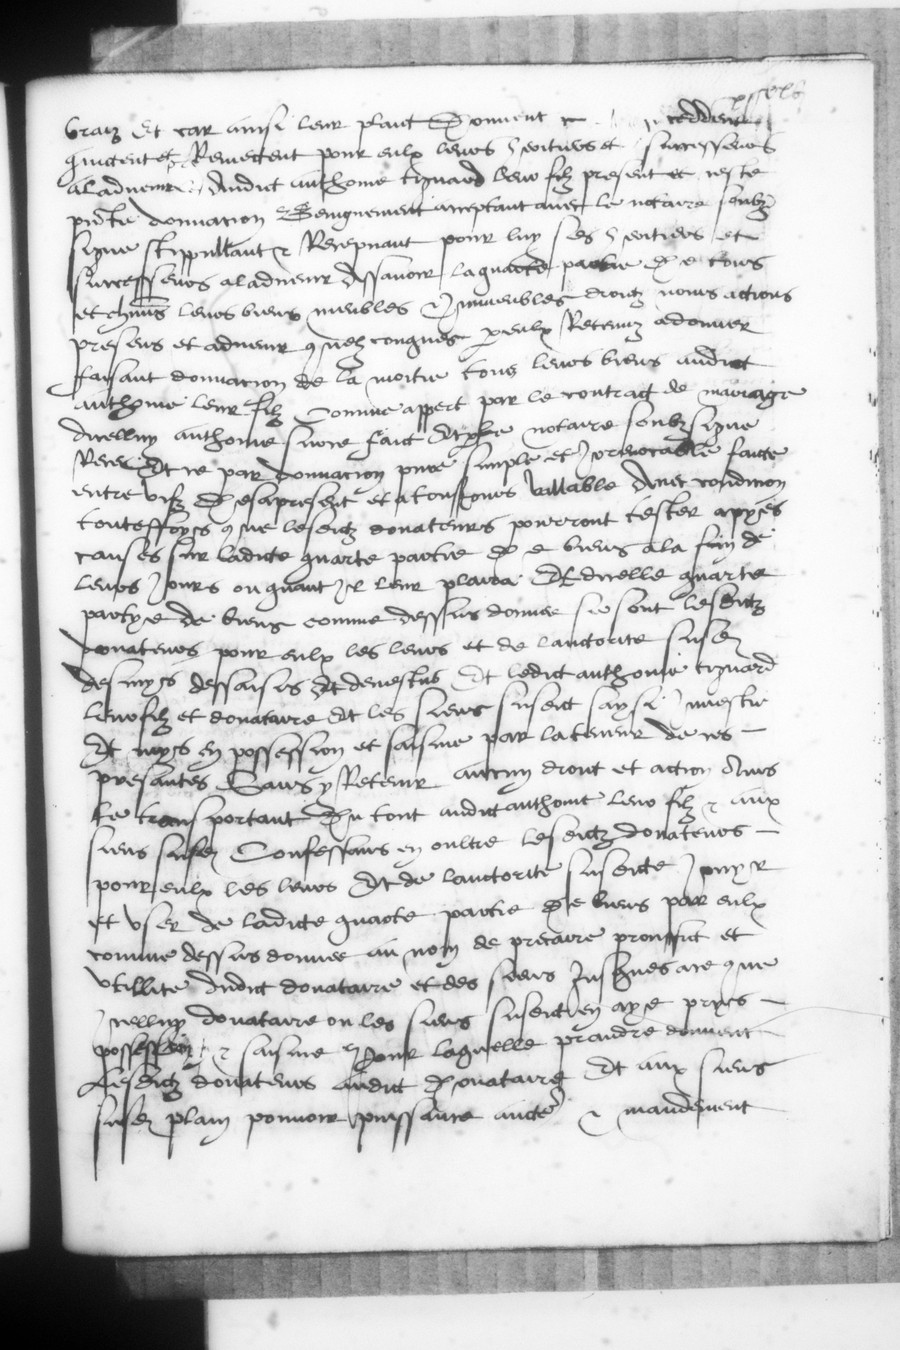 vraiz Et car ainsi leur plaict Donnent ceddent
quictent et Remectent pour eulx leurs heoritiers et successeurs
aladvenir Audict anthoine leur filz present et ceste
pnte donnacion benignement acceptant avec le notaire soubz
signe stippullant et Recepvant pour luy ses heoritiers et
successeurs aladvenir Assavoir la quarte partie de tous
et chuns leurs biens meubles et Immeubles droictz noms actions
presens et advenir quelzconques p eulx Retenuz adonner
faisant donnacion de la moitie tous leurs biens audict
anthoine leur filz Comme appert par le contract de mariage
dicelluy anthoine sur ce faict Et p le notaire soubzsigne
Receu Et ce par donnacion pure simple et Irrevocable faicte
entre vifz Des apresent et atousjours vallable Avec condition
touteffoys que lesdictz donateurs pourront tester apres
causes sur ladicte quarte partie de biens ala fin de
leurs Jours ou quant Il leur plaira Et dicelle quarte
partye de biens comme dessus donnee se sont lesdictz
donateurs pour eulx les leurs et de lauctorite susd
desmys dessaisis Et devestus Et ledict anthoine
leur filz et donataire Et les siens susdict saysi Investu
Et mys en possession et saisine par la teneur de ces
presantes Sans y Retenir aucun droict et action Ains
le transportant Du tout audict anthoine leur filz et aux
siens susd Confessans en oultre lesdictz donateurs
pour eulx les leurs Et de lauctorite susdicte Jouyr
et user de ladicte quarte partie de biens par eulx
comme dessus donnee au nom de precaire prouffict et
utillite dudict donataire et des siens Jusques ace que
Icelluy donataire ou les siens susdict en aye prys
possession et saisine Pour laquelle prandre donnent
Lesdictz donateurs audict Donataire Et aux siens
susd plain pouvoir puissance aucte et mandement